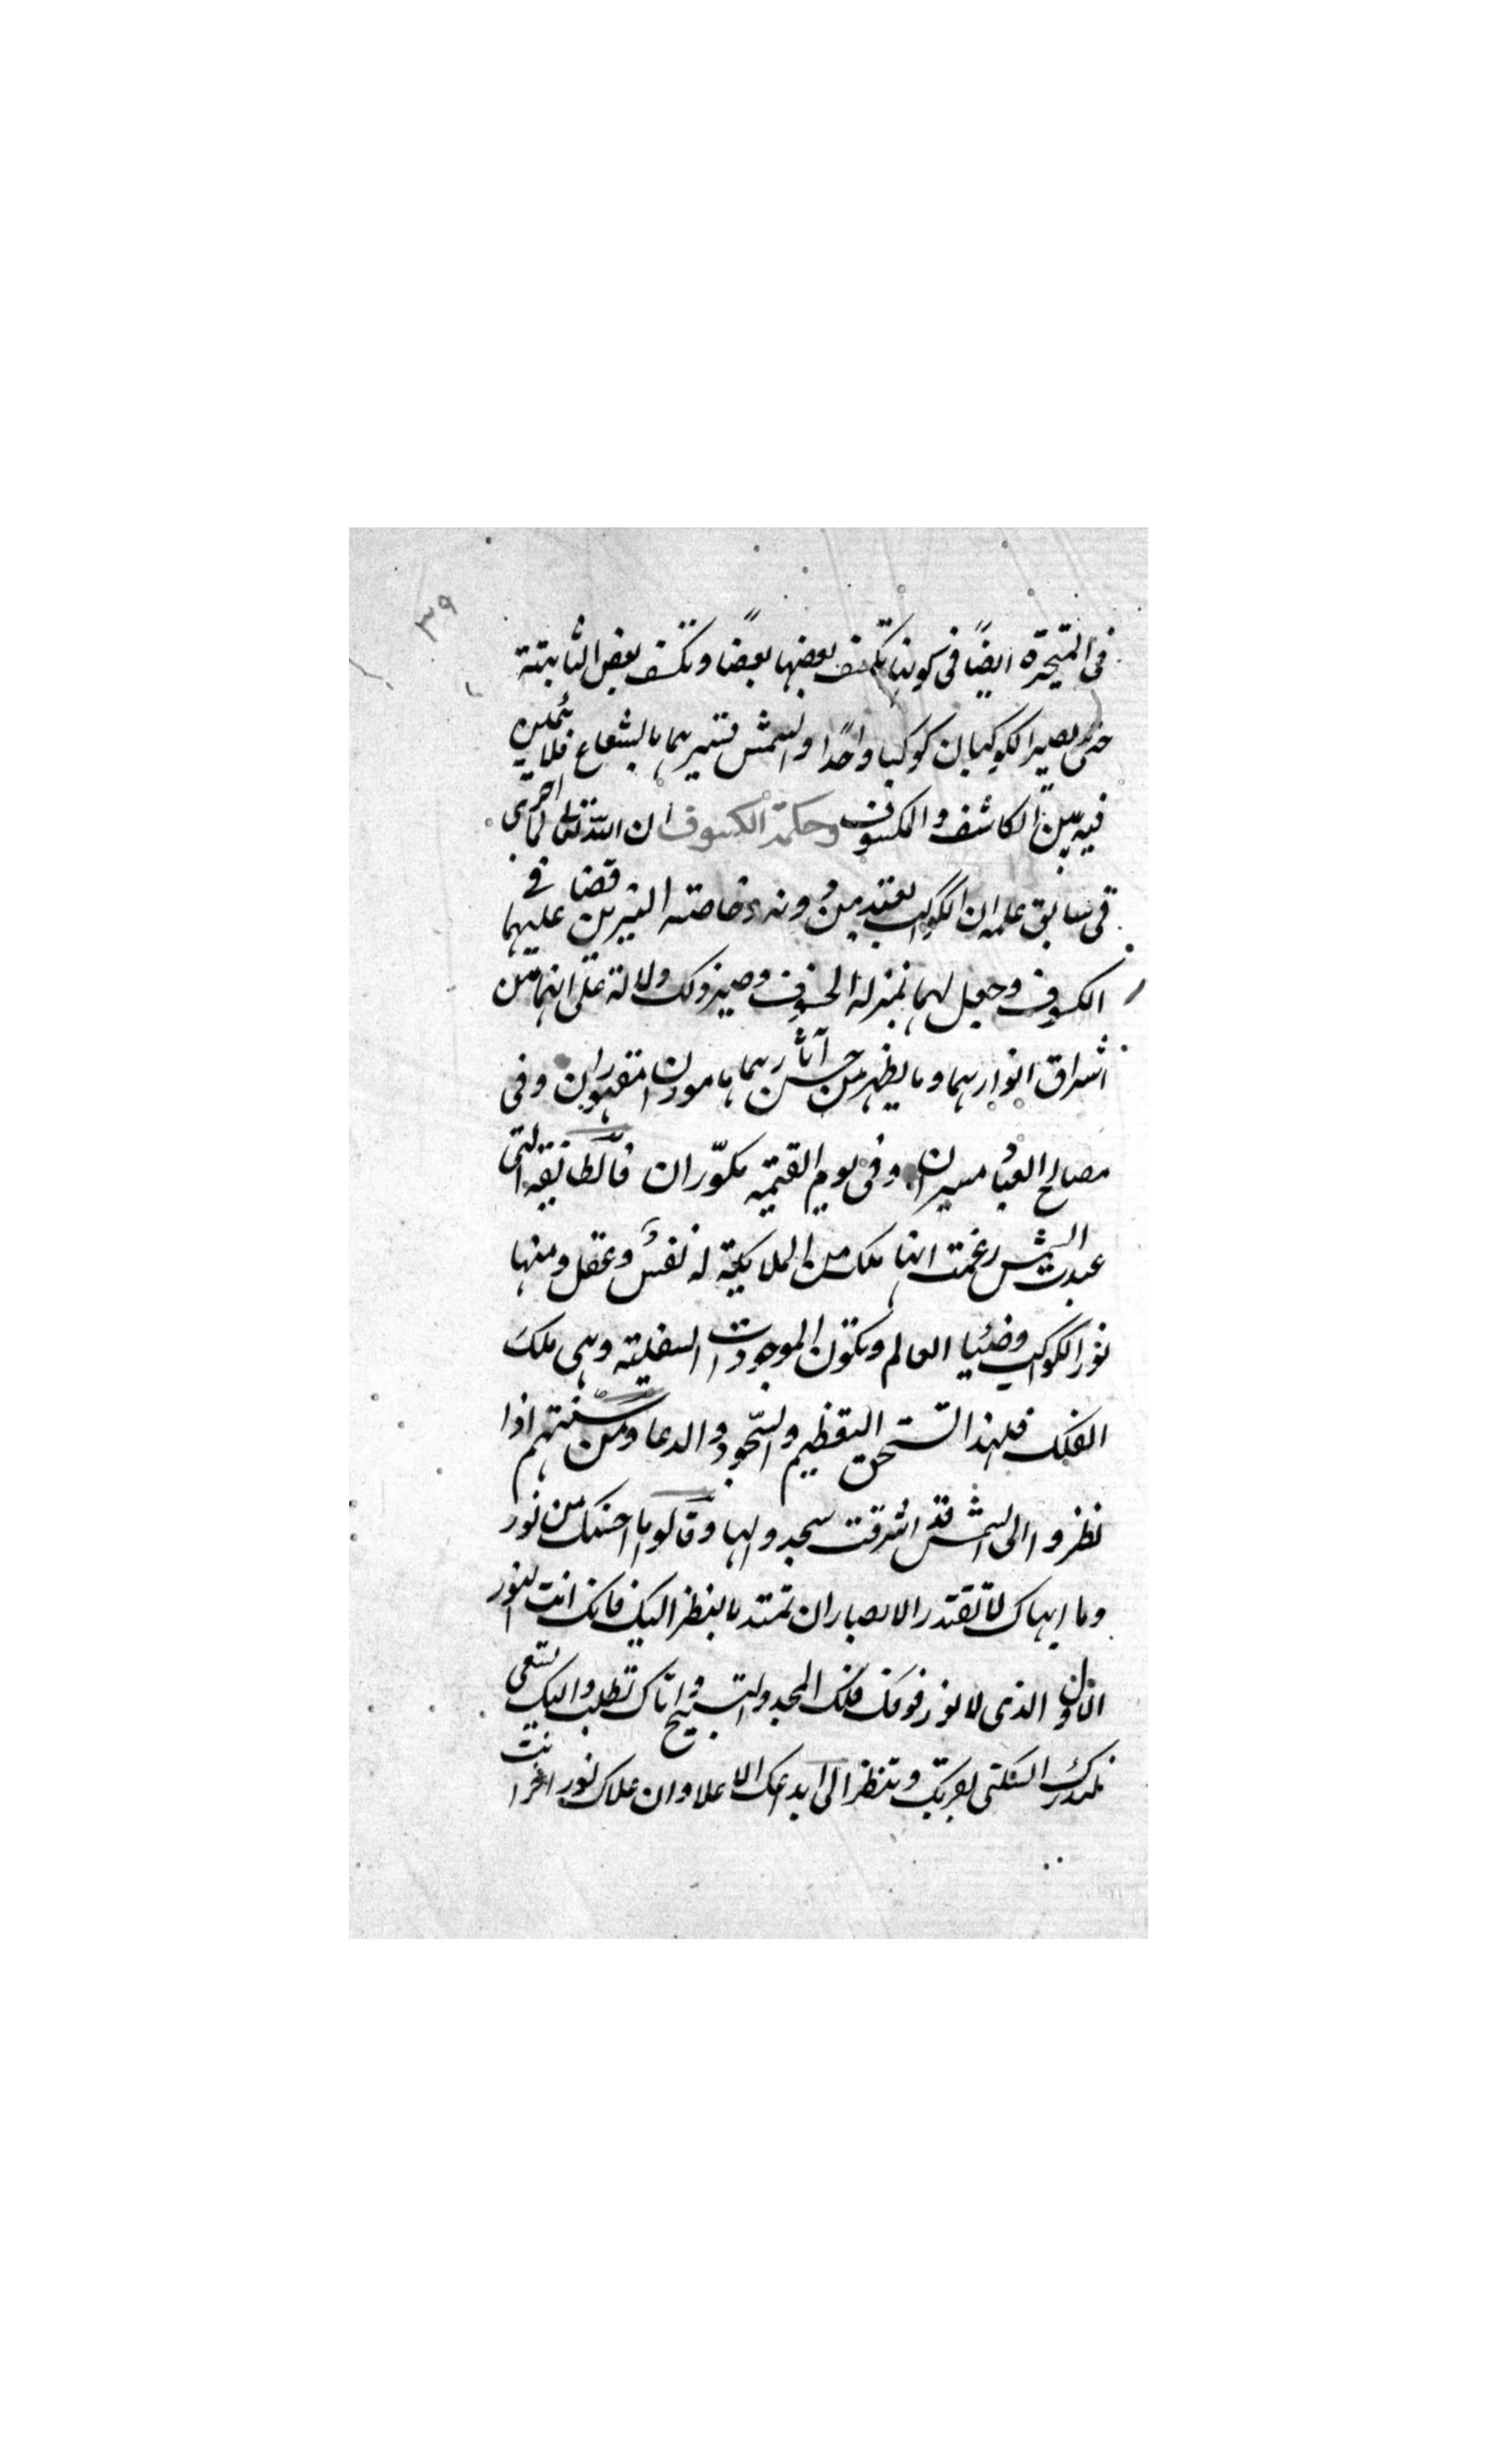 ٣٩
في المتحيرة ايضًا في كونها تكسف بعضها بعضًا وتكسف بعض الثابتة
حتى يصير الكوكبان كوكبا واحدًا والشمس تنيرهما بالشعاع فلا يمكن
فيه بين الكاشف والمكسوف وحكمة الكسوف ان الله تعالى لما اجرى
في سابق علمه ان الكواكب تعبد من دونه وخاصته النيرين قضا في عليهما
الكسوف وجعل لهما بمنزله الخسوف وصير ذلك دلالة على انهما من
اشراق انوارهما وما يظهر من حسن آثارهما ماموران مقهوران وفي
مصالح العباد مسيران وفي يوم القيمة مكوّران فالطائفة التي
عبدت الشمس زعمت انها ملك من الملائكة له نفس وعقل ومنها
نور الكواكب وضيا العالم وتكون الموجودات السفلية وهي ملك
الفلك فلهذا تستحق التعظيم والسجود والدعا ومن سنتهم اذا
نظروا الى الشمس قد اشرقت سجدوا لها وقالوا ما احسنك من نور
وما ابهاك لا تقتدر الابصار ان تمتد بالنظر اليك فانك انت النور
الاول الذي لا نور فوقك فلك المجد والتسبيح واياك نطلب واليك نسعى
لندرك السكنى بقربك وننظر الى ابداعك الاعلا وان علاك نور اخر انت